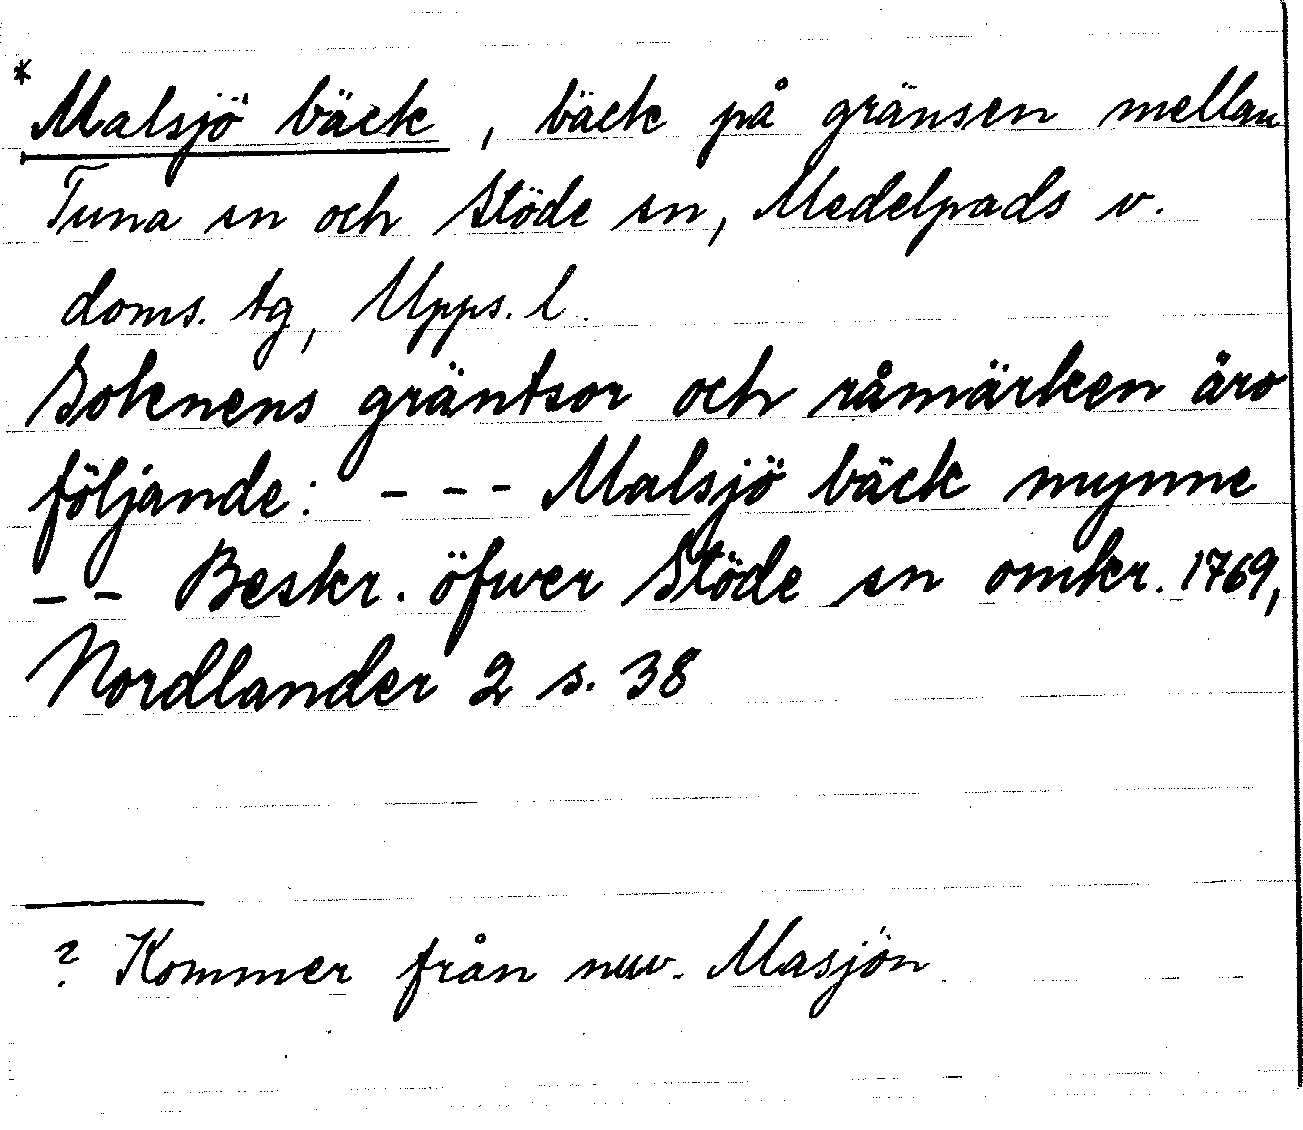 * Malsjö bäck, bäck på gränsen mellan
Tuna sn och Stöde sn, Medelpads v.
doms. tg, Upps. l.
Soknens gräntsor och råmärken äro
följande: - - - Malsjö bäck mynne
- - Beskr. öfwer Stöde sn omkr. 1769,
Nordlander 2 s. 38
? Kommer från nuv. Masjön